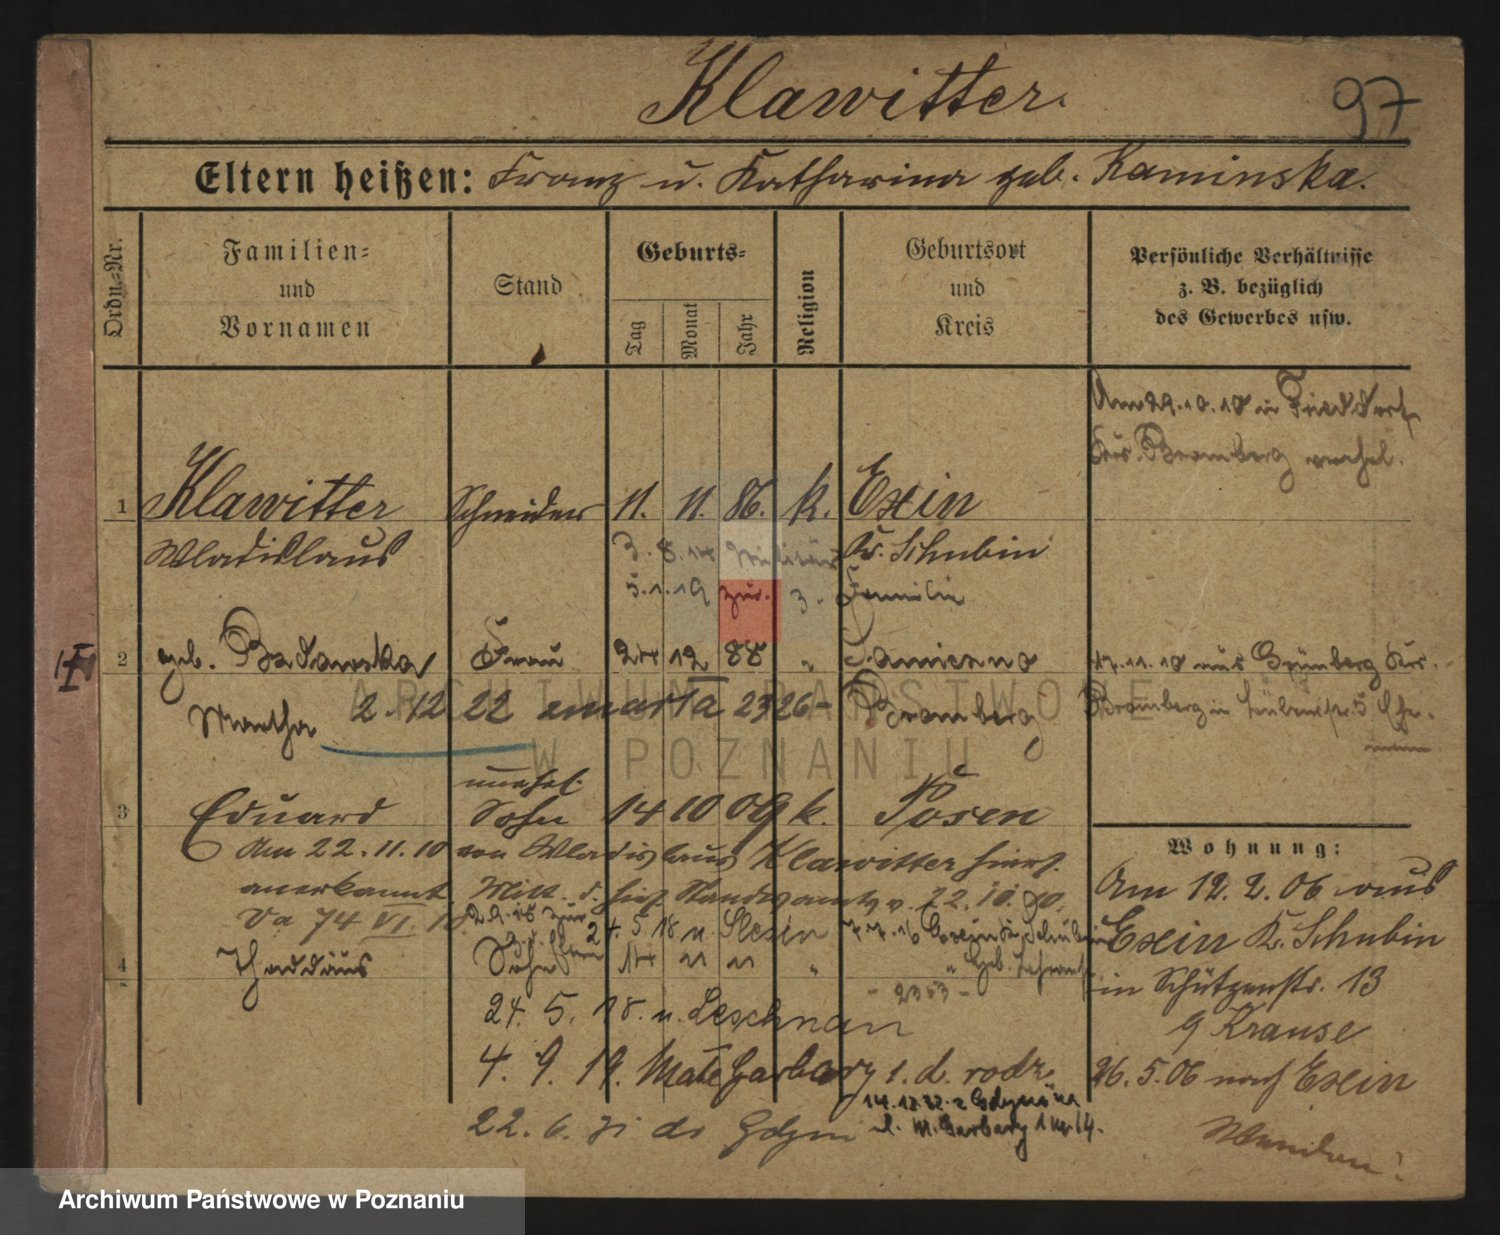 Klawitter.
97
Eltern heißen: Franz u. Katharina geb. Kaminska.
Ordn.-Nr.
Familien-
und
Vornamen
Stand
Geburts-
Tag
Monat
Jahr
Religion
Geburtsort
und
Kreis
Persönliche Verhältnisse
z. B. bezüglich
des Gewerbes usw.
Am 29.10.10 in
Krs. Bromberg verehel.
1 Klawitter Schneider 11. 11. 86. k. Exin
Wladislaus Kr. Schubin
3.8.14 Militär
5.1.19 zur. z. Familie
2 geb. Frau 24 12 88 "
Martha 2.12 22 zmarła 2326- Bromberg
17.11.10 aus Krs.
Bromberg in 5
unehel.
3 Eduard Sohn 14 10 09 k. Posen
Am 22.11.10 von Wladislaus Klawitter hier
anerkannt. Mitt. d. hies. Standesamts v. 22.10.
Va 74 VI. 24.5.18 n. Slesin 7.7.16 Exin Kr. Schubin
4 Thaddäus Sohn 14 " " "
- 2353 -
24. 5. 18. n. Leschnau
4. 9. 19. Małe Garbary 1. d. rodz.
14.12.32 z Gdynia na
22. 6. 31 do Gdyni ul. M. Garbary 1 m 14.
Wohnung:
Am 12.2.06 aus
Exin K. Schubin
in Schützenstr. 13
b Krause
26.5.06 nach Exin
Archiwum Państwowe w Poznaniu
ARCHIWUM PAŃSTWOWE
W POZNANIU